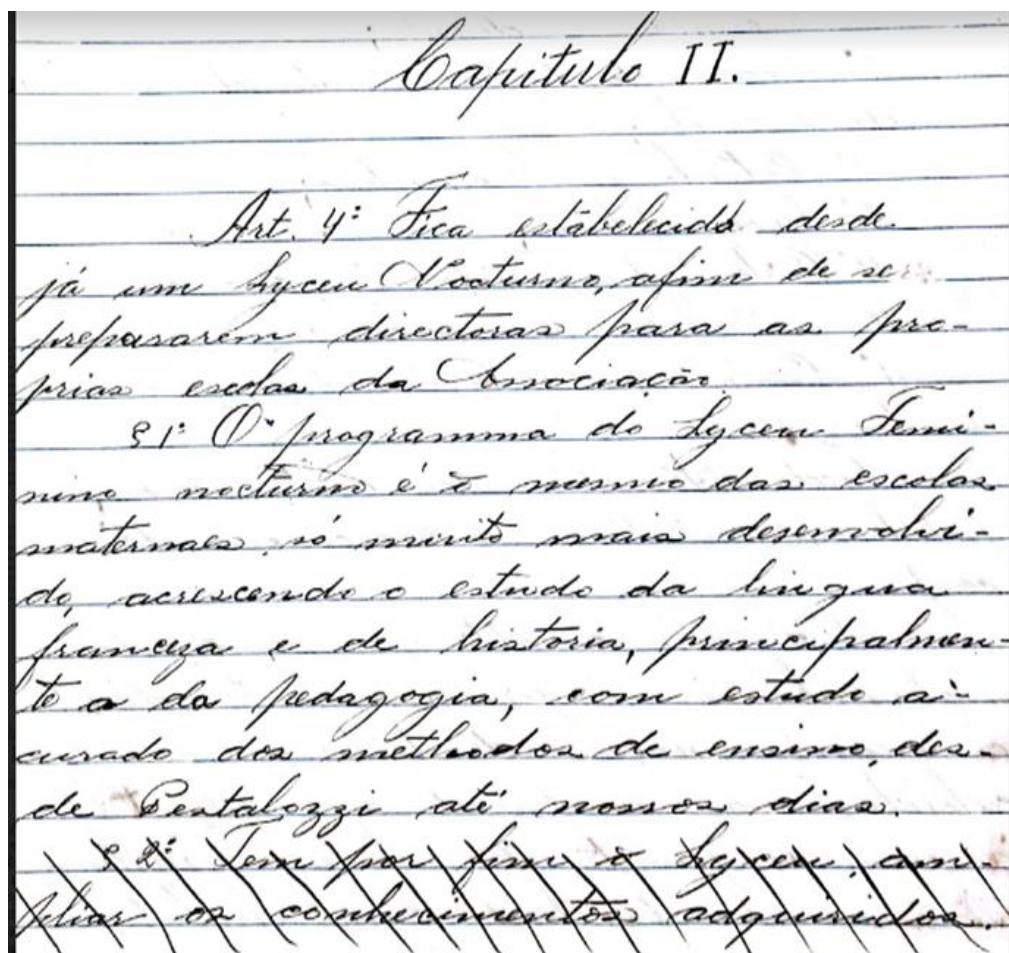 Capitulo II.
Art. 4º Fica estabelecido desde
já um Lyceu Nocturno, afim de se
prepararem directoras para as pro-
prias escolas da Associação.
§ 1º O programma do Lyceu Femi-
nino nocturno é o mesmo das escolas
maternaes, só muito mais desenvolvi-
do, acrescendo o estudo da lingua
franceza e de historia, principalmen-
te a da pedagogia, com estudo a-
curado dos methodos de ensino, des-
de Pestalozzi até nossos dias.
§ 2º Tem por fim o Lyceu, am-
pliar os conhecimentos adquiridos.